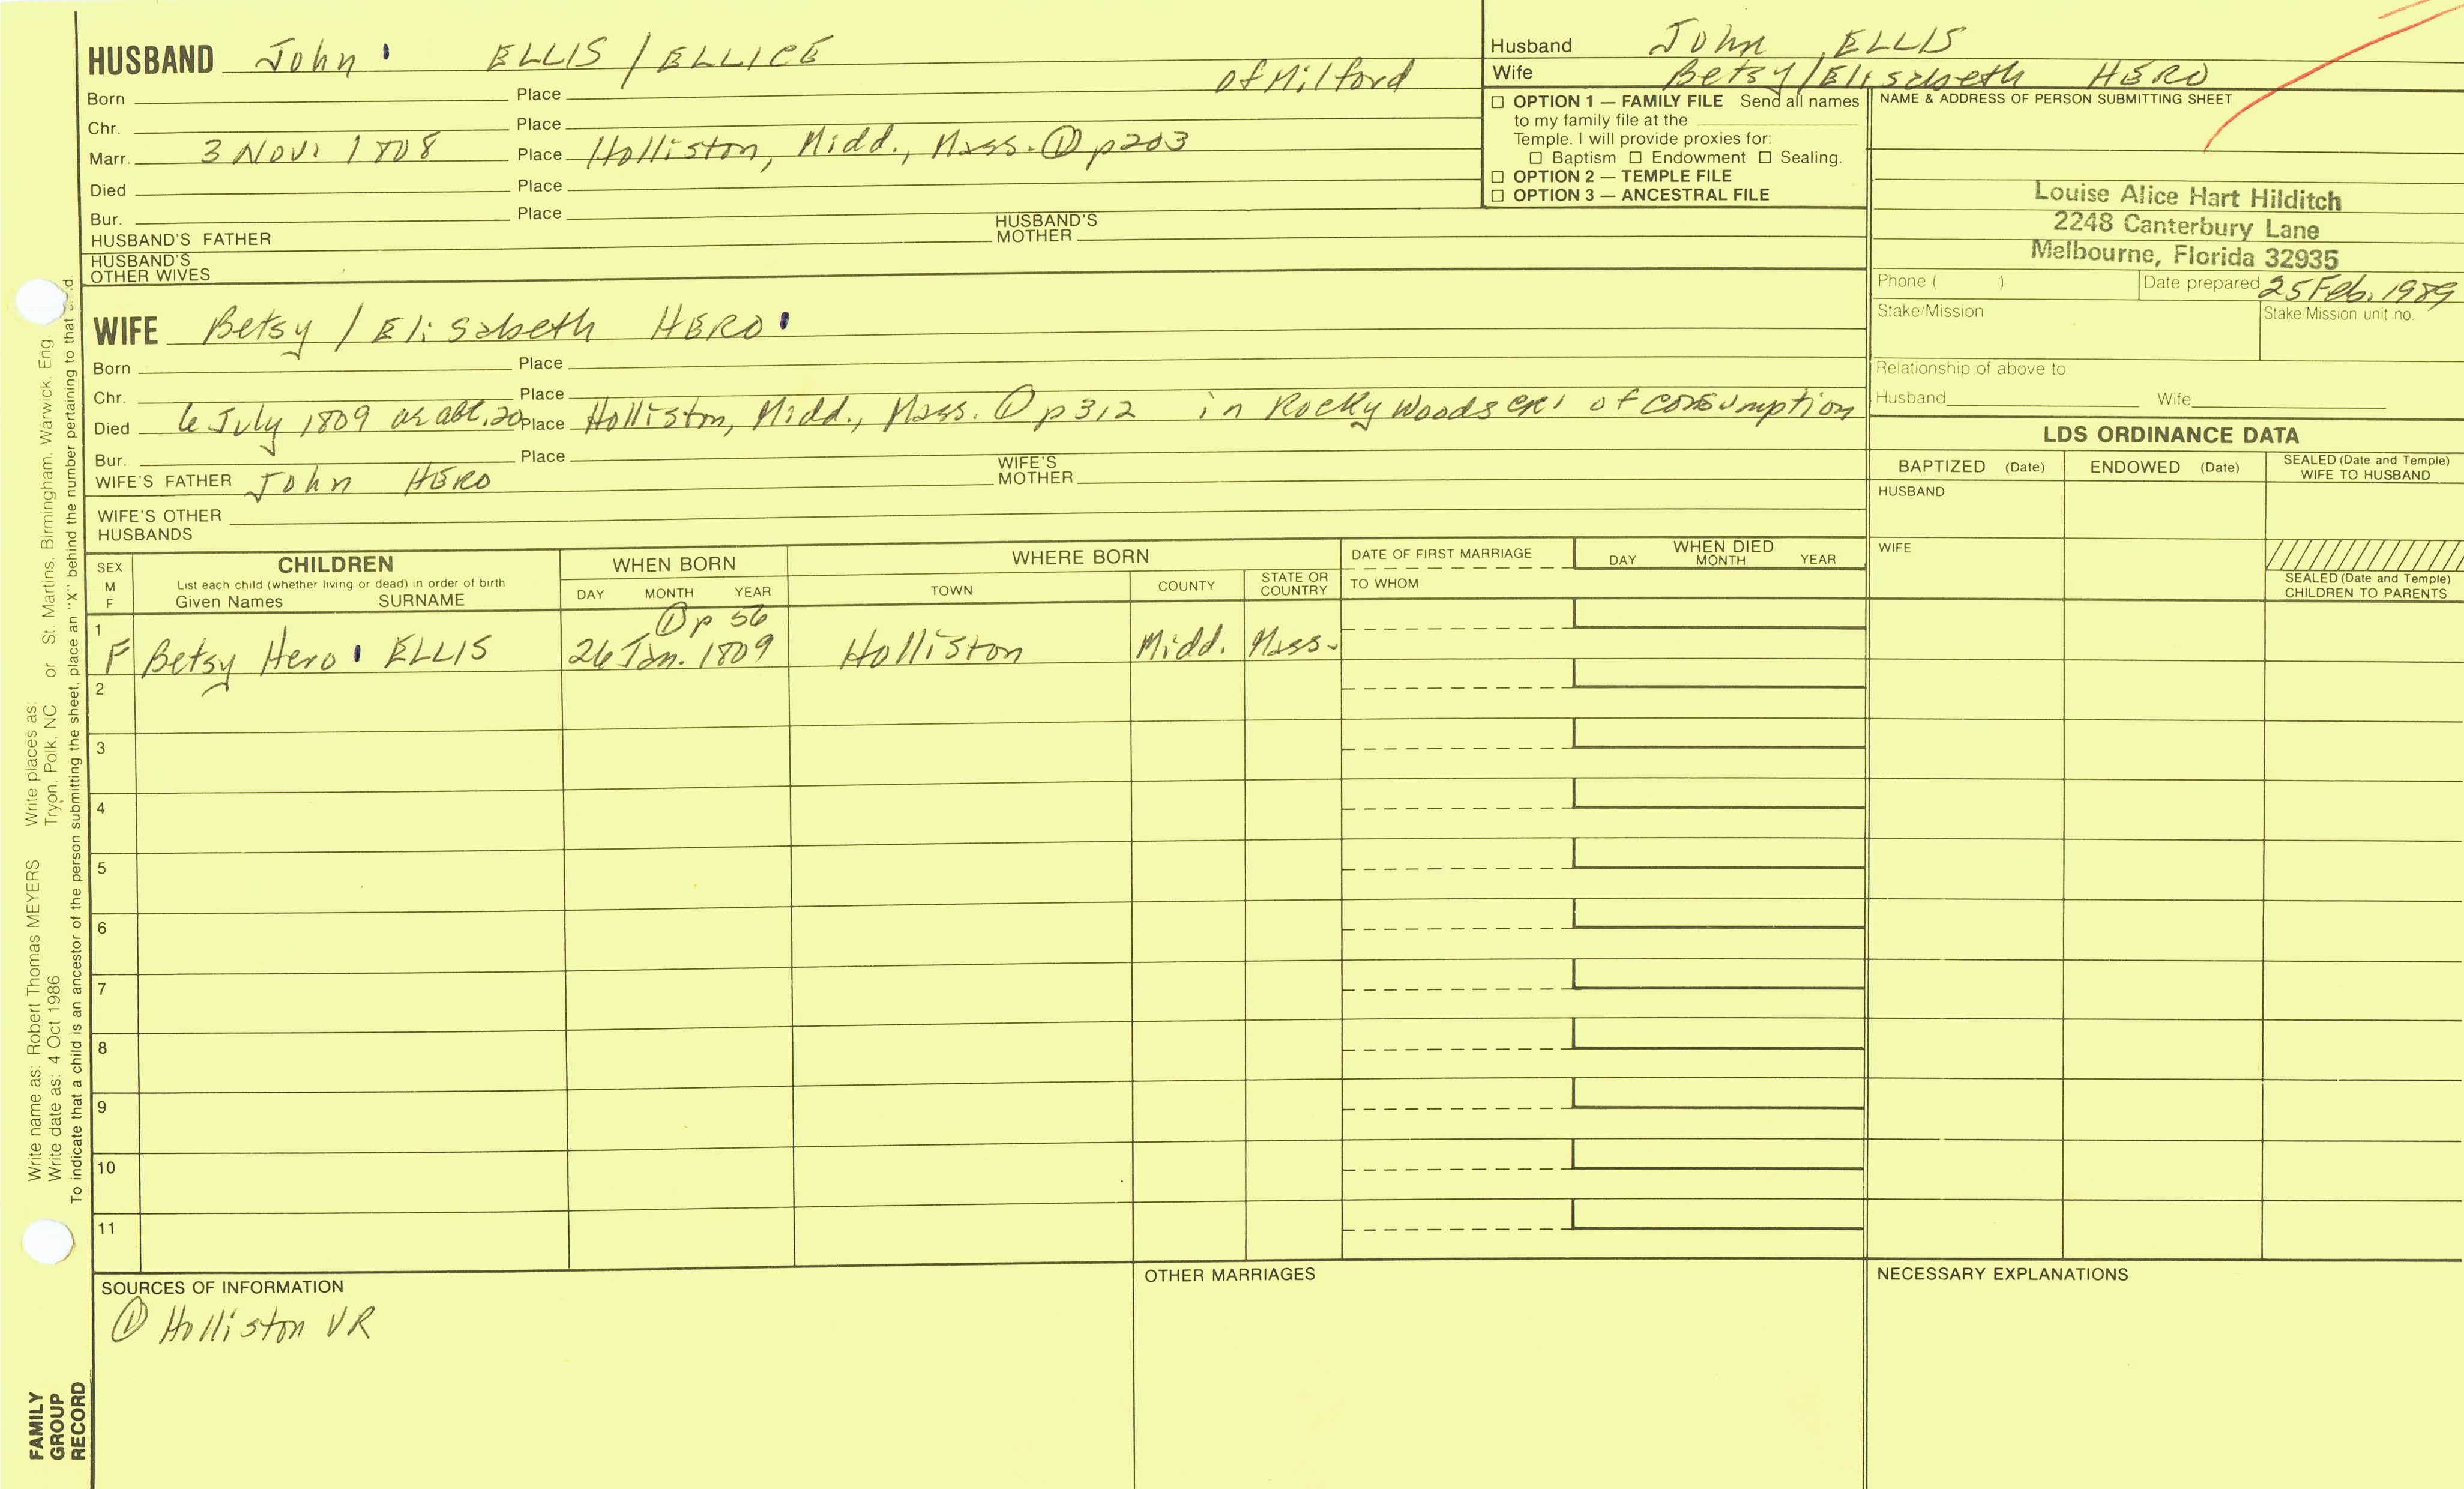 HUSBAND John ELLIS / ELLICE of Milford
Born Place
Chr. Place
Marr. 3 Nov. 1808 Place Holliston, Midd., Mass. ① p203
Died Place
Bur. Place
HUSBAND'S FATHER HUSBAND'S MOTHER
HUSBAND'S OTHER WIVES
Husband John ELLIS
Wife Betsy/Elisabeth HERO
☐ OPTION 1 — FAMILY FILE Send all names
to my family file at the
Temple. I will provide proxies for:
☐ Baptism ☐ Endowment ☐ Sealing.
☐ OPTION 2 — TEMPLE FILE
☐ OPTION 3 — ANCESTRAL FILE
NAME & ADDRESS OF PERSON SUBMITTING SHEET
Louise Alice Hart Hilditch
2248 Canterbury Lane
Melbourne, Florida 32935
Phone ( ) Date prepared 25 Feb. 1989
Stake/Mission Stake/Mission unit no.
Relationship of above to
Husband Wife
WIFE Betsy / Elisabeth HERO
Born Place
Chr. Place
Died 6 July 1809 as abt. 20 Place Holliston, Midd., Mass. ① p312 in Rocky Woods of consumption
Bur. Place
WIFE'S FATHER John HERO WIFE'S MOTHER
WIFE'S OTHER HUSBANDS
LDS ORDINANCE DATA
BAPTIZED (Date) ENDOWED (Date) SEALED (Date and Temple) WIFE TO HUSBAND
HUSBAND
WIFE
SEALED (Date and Temple) CHILDREN TO PARENTS
SEX M F
CHILDREN
List each child (whether living or dead) in order of birth
Given Names SURNAME
WHEN BORN
DAY MONTH YEAR
WHERE BORN
TOWN COUNTY STATE OR COUNTRY
DATE OF FIRST MARRIAGE
TO WHOM
WHEN DIED
DAY MONTH YEAR
① p 56
1 F Betsy Hero ELLIS 26 Jan. 1809 Holliston Midd. Mass.
2
3
4
5
6
7
8
9
10
11
SOURCES OF INFORMATION
① Holliston VR
OTHER MARRIAGES
NECESSARY EXPLANATIONS
FAMILY
GROUP
RECORD
Write name as: Robert Thomas MEYERS Write places as:
Write date as: 4 Oct 1986 Tryon, Polk, NC or St. Martins, Birmingham, Warwick, Eng
To indicate that a child is an ancestor of the person submitting the sheet, place an "X" behind the number pertaining to that